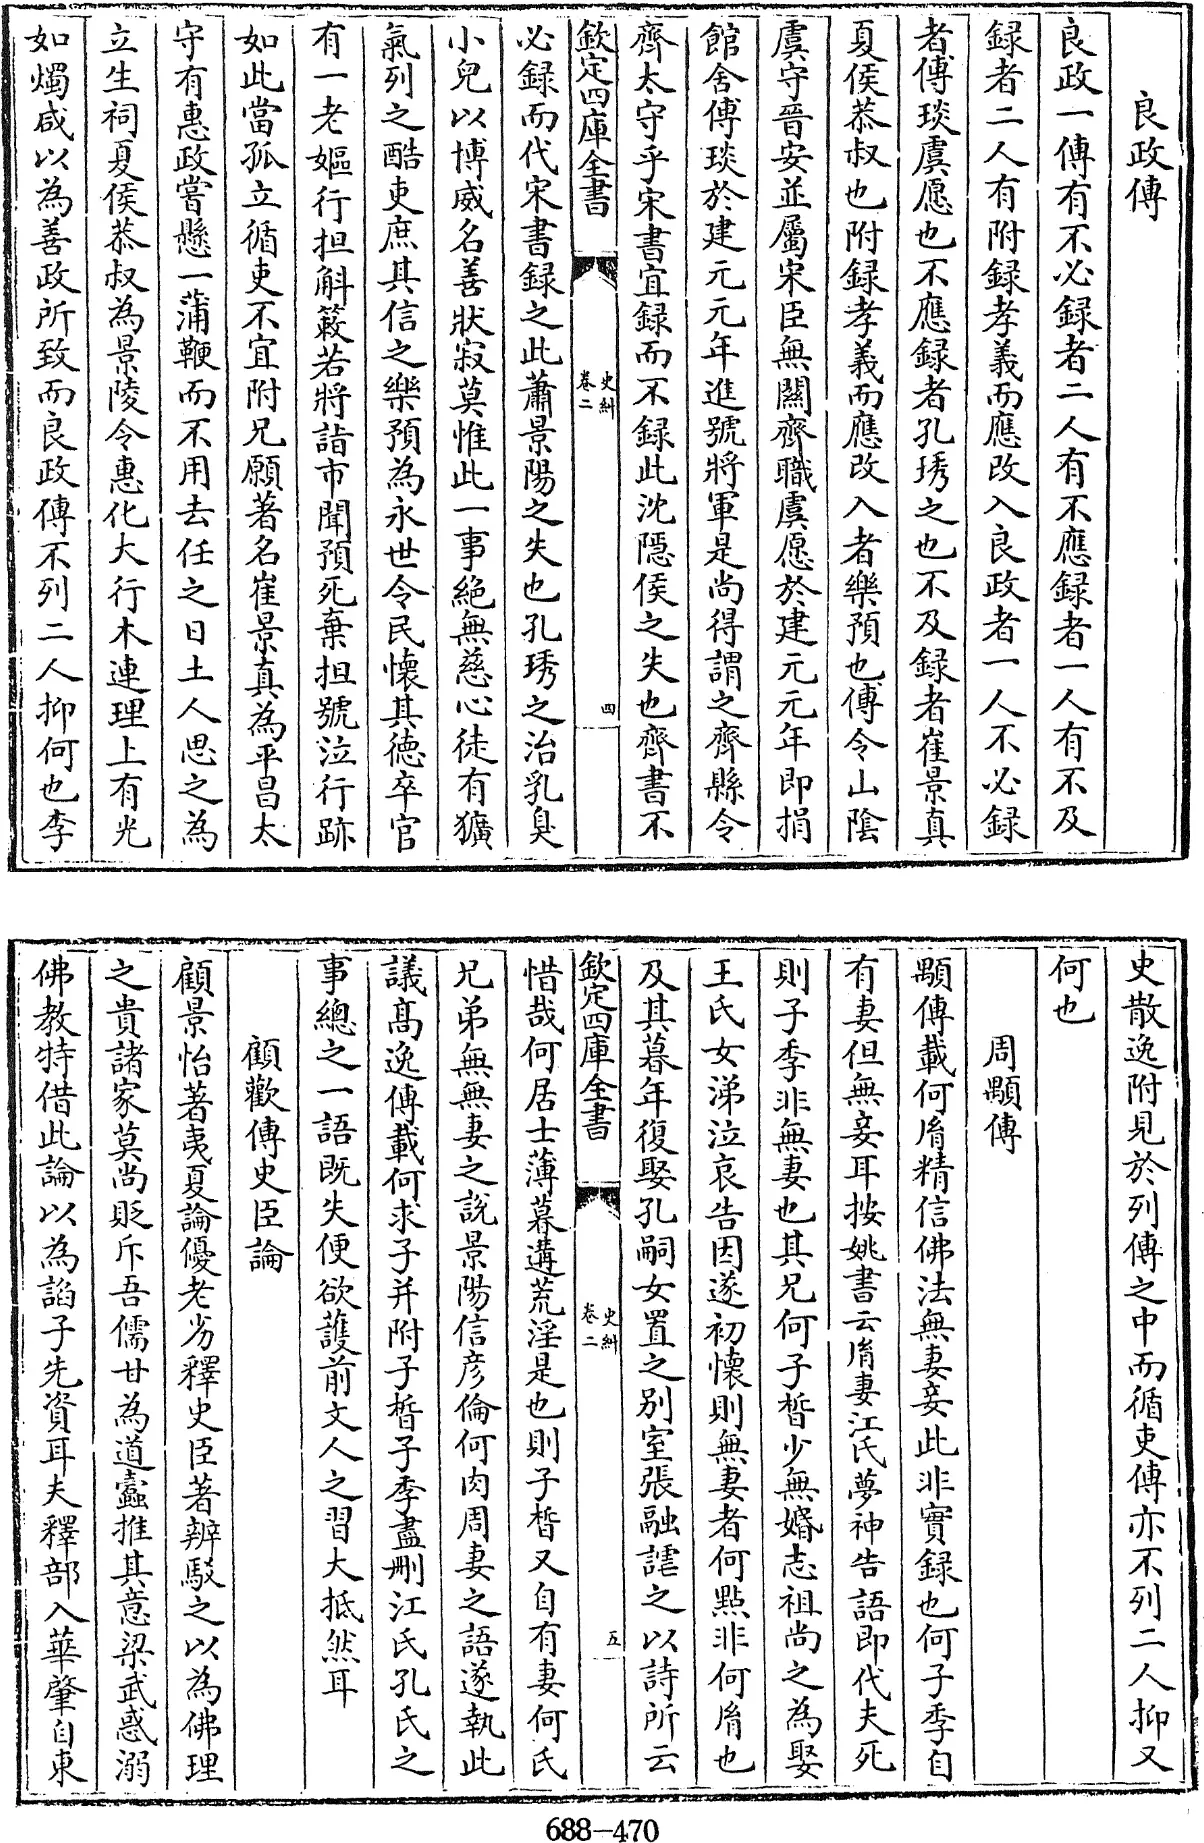 良政傳
良政一傳有不必録者二人有不應録者一人有不及
録者二人有附録孝義而應改入良政者一人不必録
者傅琰虞愿也不應録者孔琇之也不及録者崔景真
夏侯恭叔也附録孝義而應改入者樂預也傅令山隂
虞守晉安並屬宋臣無闗齊職虞愿於建元元年即捐
館舍傅琰於建元元年進號將軍是尚得謂之齊縣令
齊太守乎宋書宜録而不録此沈隱侯之失也齊書不
欽定四庫全書
史糾
卷二
四
必録而代宋書録之此蕭景陽之失也孔琇之治乳臭
小兒以博威名善狀寂莫惟此一事絶無慈心徒有獷
氣列之酷吏庶其信之樂預為永世令民懷其德卒官
有一老嫗行担斛蔌若將詣市聞預死棄担號泣行跡
如此當孤立循吏不宜附兄願著名崔景真為平昌太
守有惠政嘗懸一蒲鞭而不用去任之日土人思之為
立生祠夏侯恭叔為景陵令惠化大行木連理上有光
如燭咸以為善政所致而良政傳不列二人抑何也李
史散逸附見於列傳之中而循吏傳亦不列二人抑又
何也
周顒傳
顒傳載何胤精信佛法無妻妾此非實録也何子季自
有妻但無妾耳按姚書云胤妻江氏夢神告語即代夫死
則子季非無妻也其兄何子晳少無婚志祖尚之為娶
王氏女涕泣哀告因遂初懷則無妻者何點非何胤也
及其暮年復娶孔嗣女置之别室張融謔之以詩所云
欽定四庫全書
史糾
卷二
五
惜哉何居士薄暮遘荒淫是也則子晳又自有妻何氏
兄弟無無妻之説景陽信彦倫何肉周妻之語遂執此
議髙逸傳載何求子并附子晳子季盡刪江氏孔氏之
事總之一語既失便欲䕶前文人之習大抵然耳
顧歡傳史臣論
顧景怡著夷夏論優老劣釋史臣著辨駁之以為佛理
之貴諸家莫尚貶斥吾儒甘為道蠧推其意梁武惑溺
佛教特借此論以為謟子先資耳夫釋部入華肇自東
688—470